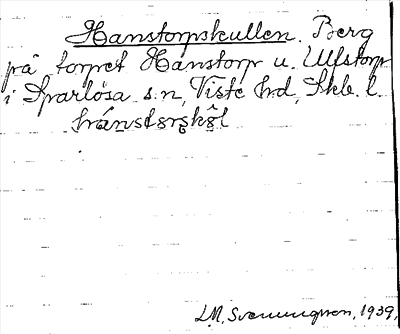 Hanstorpskullen. Berg
på torpet Hanstorp u. Ulfstorp
i Sparlösa s:n, Viste hd, Skb. l.
hánstorpskŏ̀l
L.M. Svenungsson, 1939.